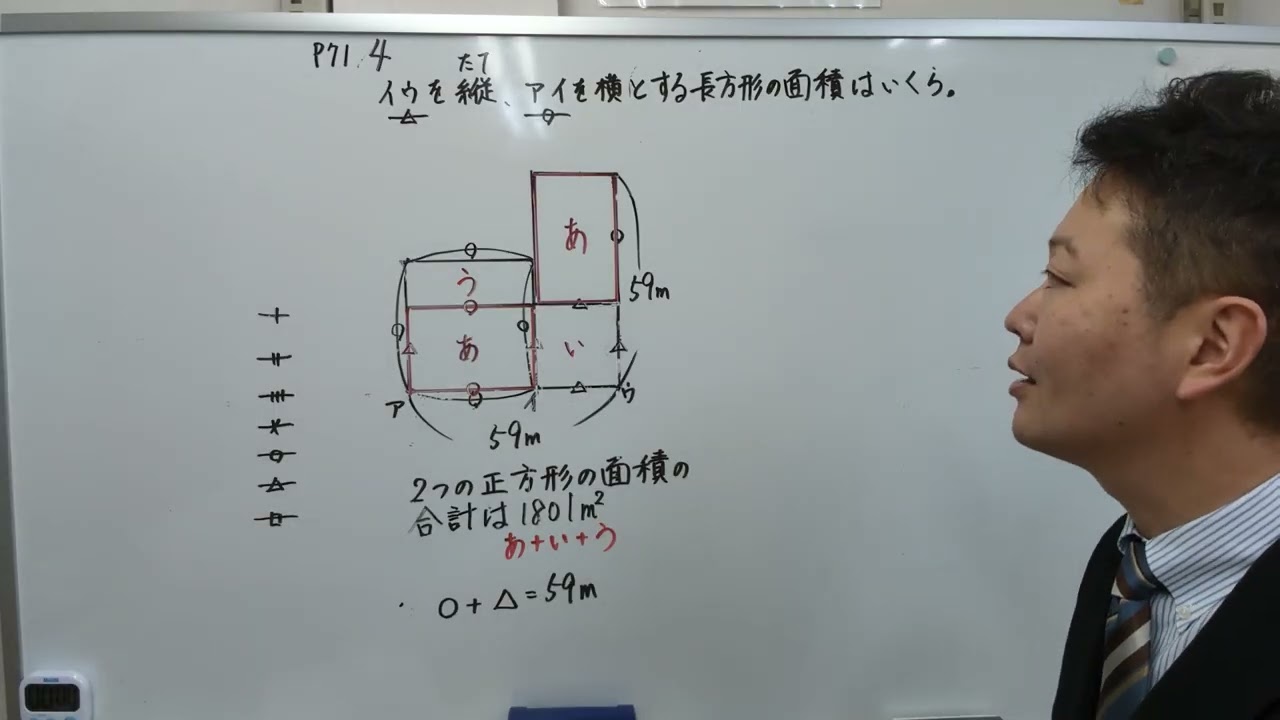 P71.4
たて
イウを縦、アイを横とする長方形の面積はいくら。
あ
う
59m
あ
い
ア
イ
ウ
59m
2つの正方形の面積の
合計は1801m²
あ+い+う
○+△=59m